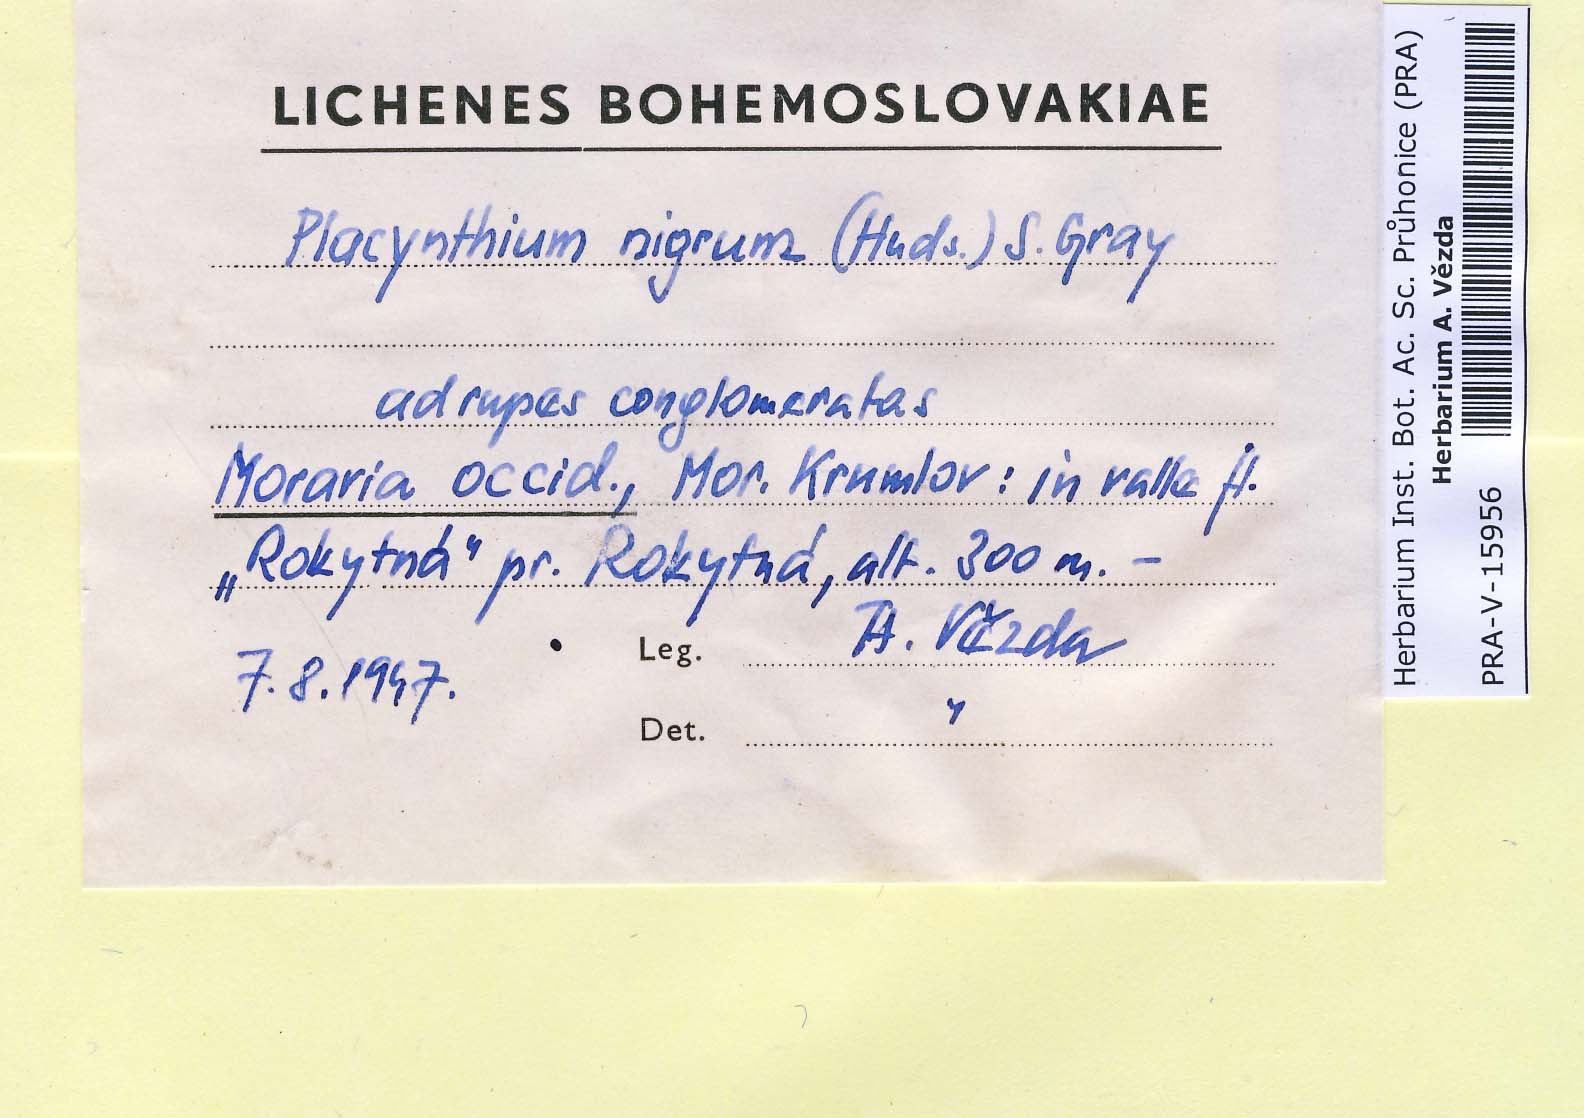 LICHENES BOHEMOSLOVAKIAE
Placynthium nigrum (Huds.) S. Gray
ad rupes conglomeratas
Moravia occid., Mor. Krumlov: in valle fl.
„Rokytná" pr. Rokytná, alt. 300 m. –
7.8.1947.
Leg. A. Vězda
Det. "
Herbarium Inst. Bot. Ac. Sc. Průhonice (PRA)
Herbarium A. Vězda
PRA-V-15956